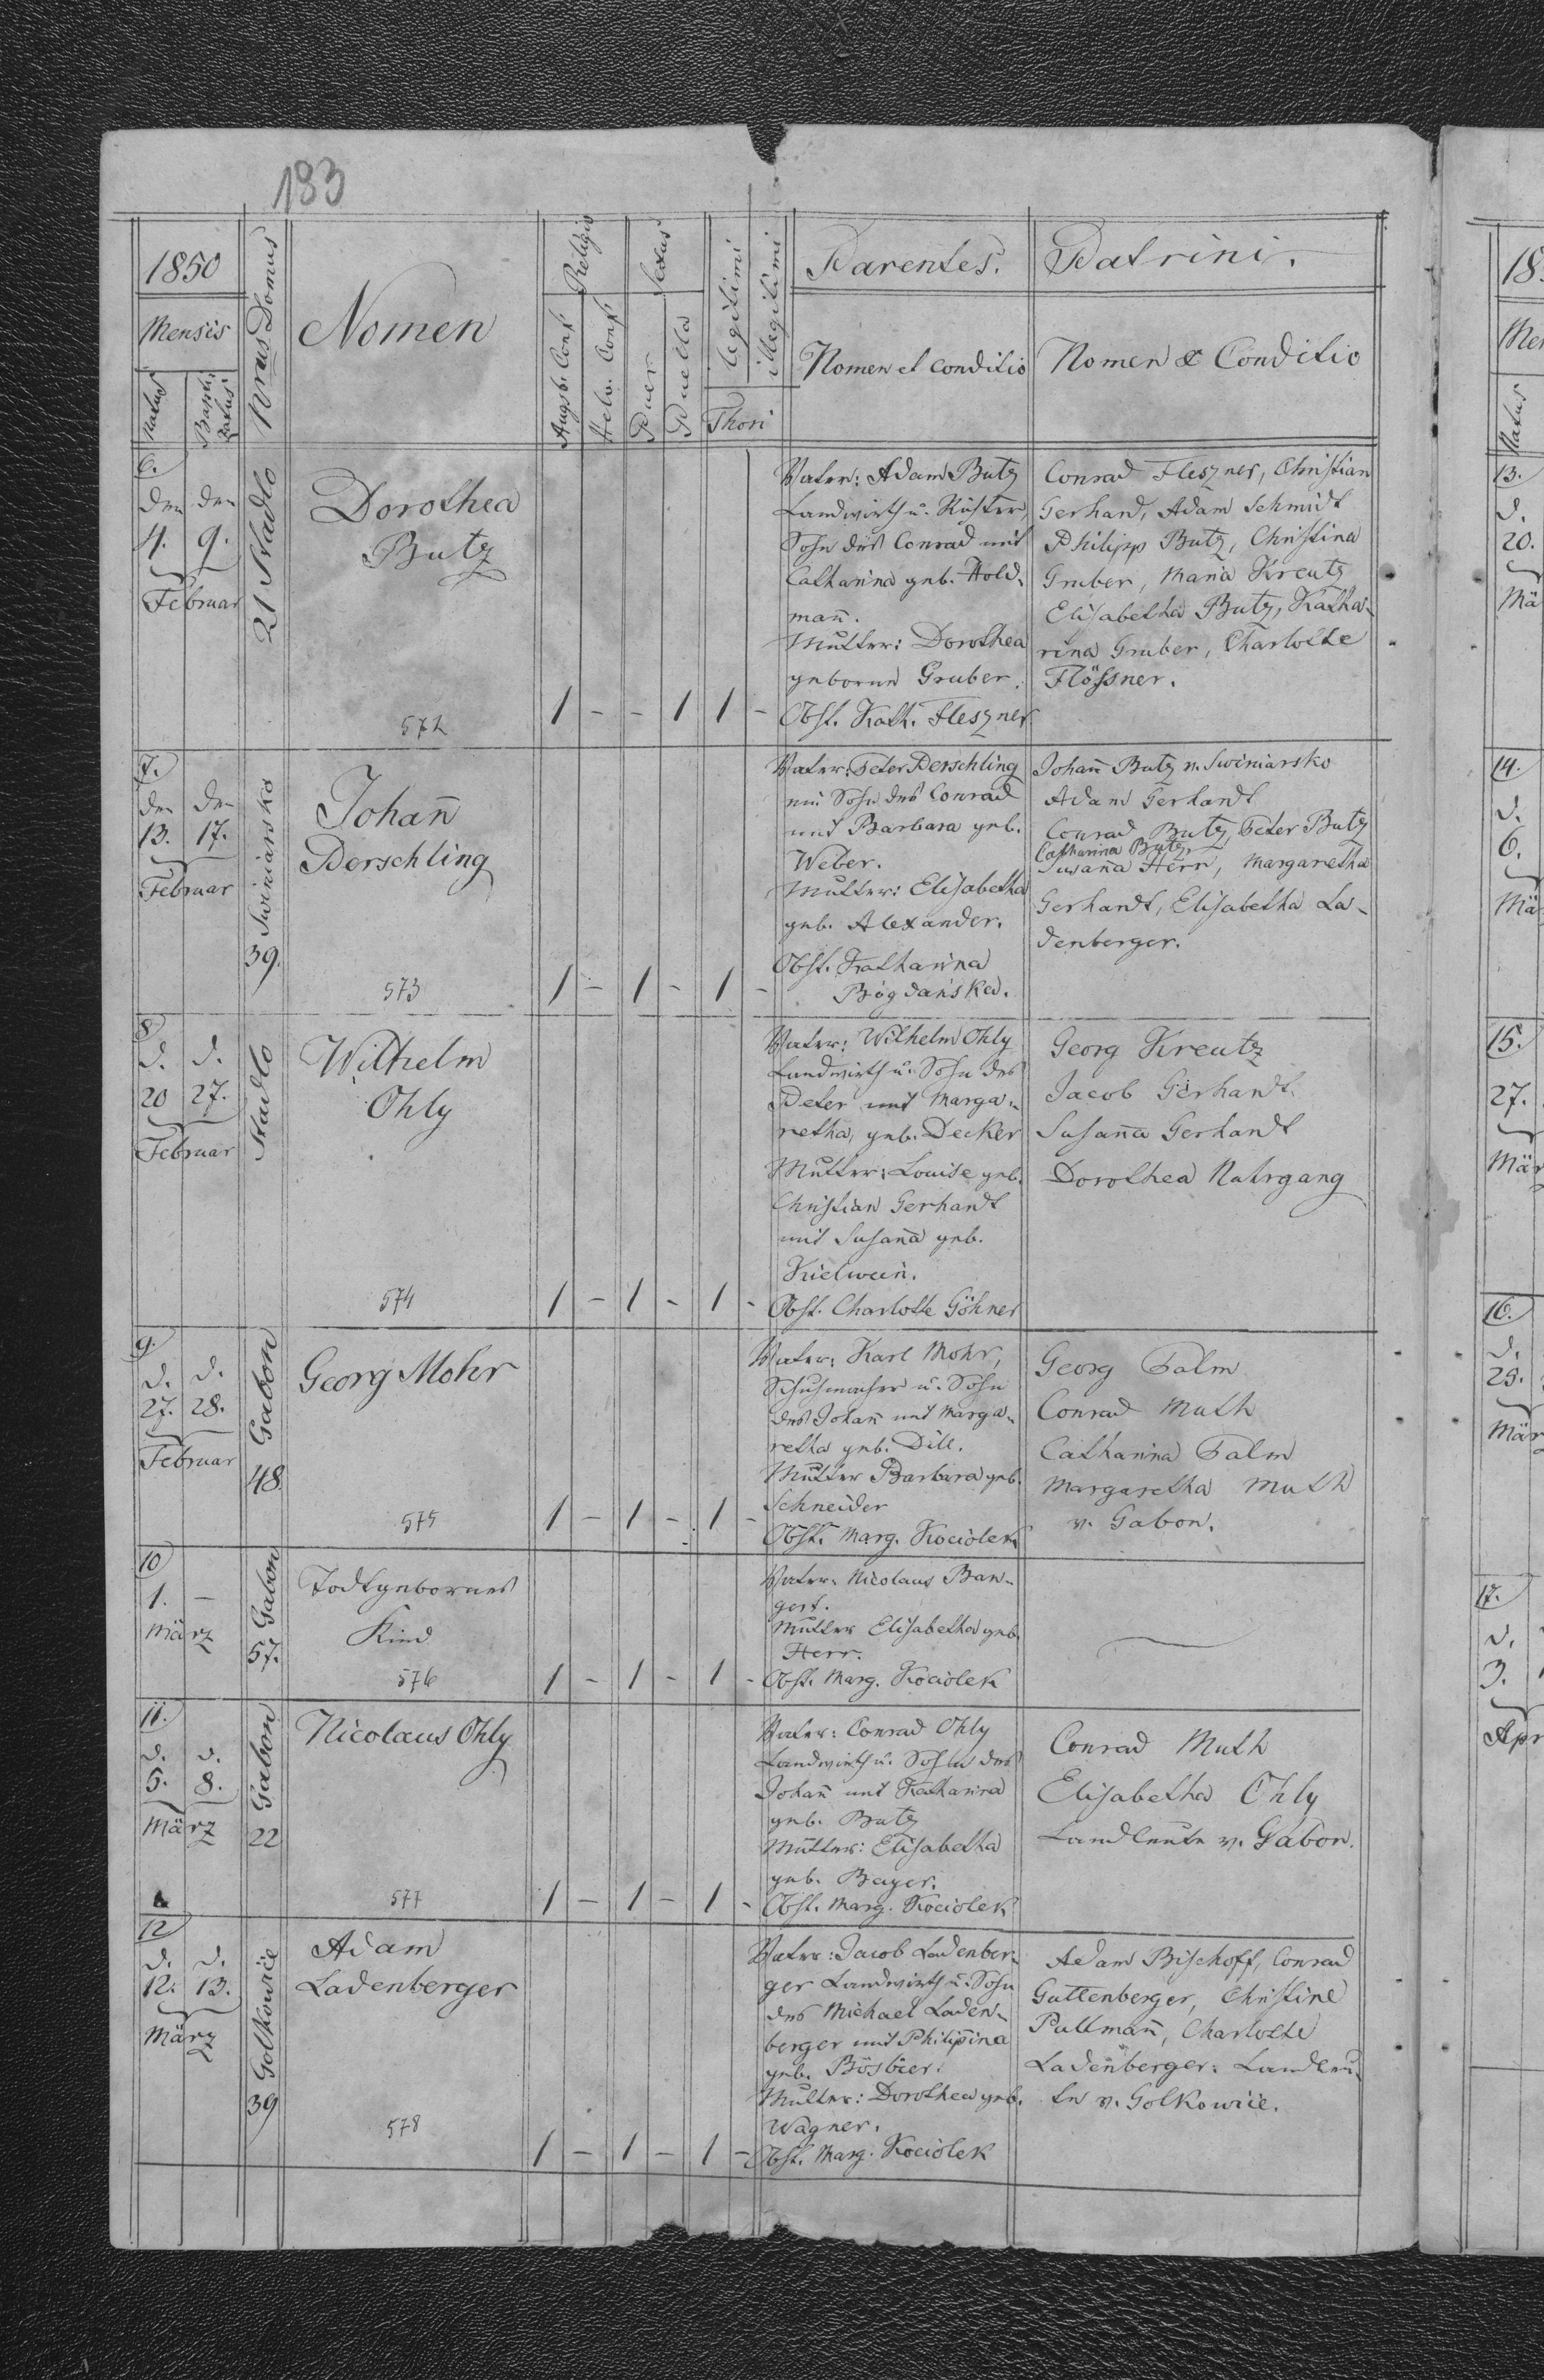 183
1850
Mensis
Natus
Bapti-
zatus
Nrus Domus
Nomen
Religio
Augsb. Conf
Helv. Conf
Sexus
Puer
Puella
legitimi
illegitimi
Thori
Parentes.
Nomen et conditio
Patrini.
Nomen & Conditio
6.
den den
4. 9.
Februar
21 Stadlo
Dorothea
Butz
572
1 - - 1 1 -
Vater: Adam Butz
Landwirth u. Küster,
Sohn des Conrad und
Catharina geb. Hold-
mañ.
Mutter: Dorothea
geborne Gruber.
Obst. Kath. Fleszner
Conrad Fleszner, Christian
Gerhard, Adam Schmidt
Philipp Butz, Christina
Gruber, Maria Kreutz
Elisabetha Butz, Katha-
rina Gruber, Charlotte
Flössner.
7.
den den
13. 17.
Februar
39. Swiniarsko
Johañ
Derschling
573
1 - 1 - 1 -
Vater: Peter Derschling
ein Sohn des Conrad
und Barbara geb.
Weber.
Mutter: Elisabetha
geb. Alexander.
Obst. Katharina
Bogdańska.
Johañ Butz v. Swiniarsko
Adam Gerhandt
Conrad Butz, Peter Butz
Catharina Butz,
Susaña Herr, Margaretha
Gerhandt, Elisabetha La-
denberger.
8
d. d.
20 27.
Februar
Stadlo
Wilhelm
Ohly
574
1 - 1 - 1 -
Vater: Wilhelm Ohly
Landwirth u. Sohn des
Peter und Marga-
retha, geb. Decker
Mutter: Louise geb.
Christian Gerhandt
und Susaña geb.
Kielwein.
Obst. Charlotte Göhner
Georg Kreutz
Jacob Gerhandt.
Susaña Gerhandt
Dorothea Nahrgang
9.
d. d.
27. 28.
Februar
48. Gabon
Georg Mohr
575
1 - 1 - 1 -
Vater: Karl Mohr,
Schuhmacher u. Sohn
des Johañ und Marga-
retha geb. Dill.
Mutter Barbara geb.
Schneider
Obst. Marg. Kociolek
Georg Palm
Conrad Muth
Catharina Palm
Margaretha Muth
v. Gabon.
10
1. -
März
57. Gabon
Todtgebornes
Kind
576
1 - 1 - 1 -
Vater: Nicolaus Ban-
gert.
Mutter Elisabetha geb.
Herr.
Obst. Marg. Kociolek
11.
d. d.
5. 8.
März
22 Gabon
Nicolaus Ohly
577
1 - 1 - 1 -
Vater: Conrad Ohly
Landwirth u. Sohn des
Johañ und Katharina
geb. Butz
Mutter: Elisabetha
geb. Bayer.
Obst. Marg. Kociolek
Conrad Muth
Elisabetha Ohly
Landleute v. Gabon.
12
d. d.
12. 13.
März
39 Golkowice
Adam
Ladenberger
578
1 - 1 - 1 -
Vater: Jacob Ladenber-
ger Landwirth u. Sohn
des Michael Laden-
berger und Philipina
geb. Bösbier.
Mutter: Dorothea geb.
Wagner.
Obst. Marg. Kociolek
Adam Bischoff, Conrad
Guttenberger, Christine
Pullmañ, Charlotte
Ladenberger: Landleu-
te v. Golkowice.
18
Me
Natus
13.
d.
20.
Mä
14.
d.
6.
Mä
15.
27.
Mär
16.
d.
25.
Mär
17.
d.
3.
Apr